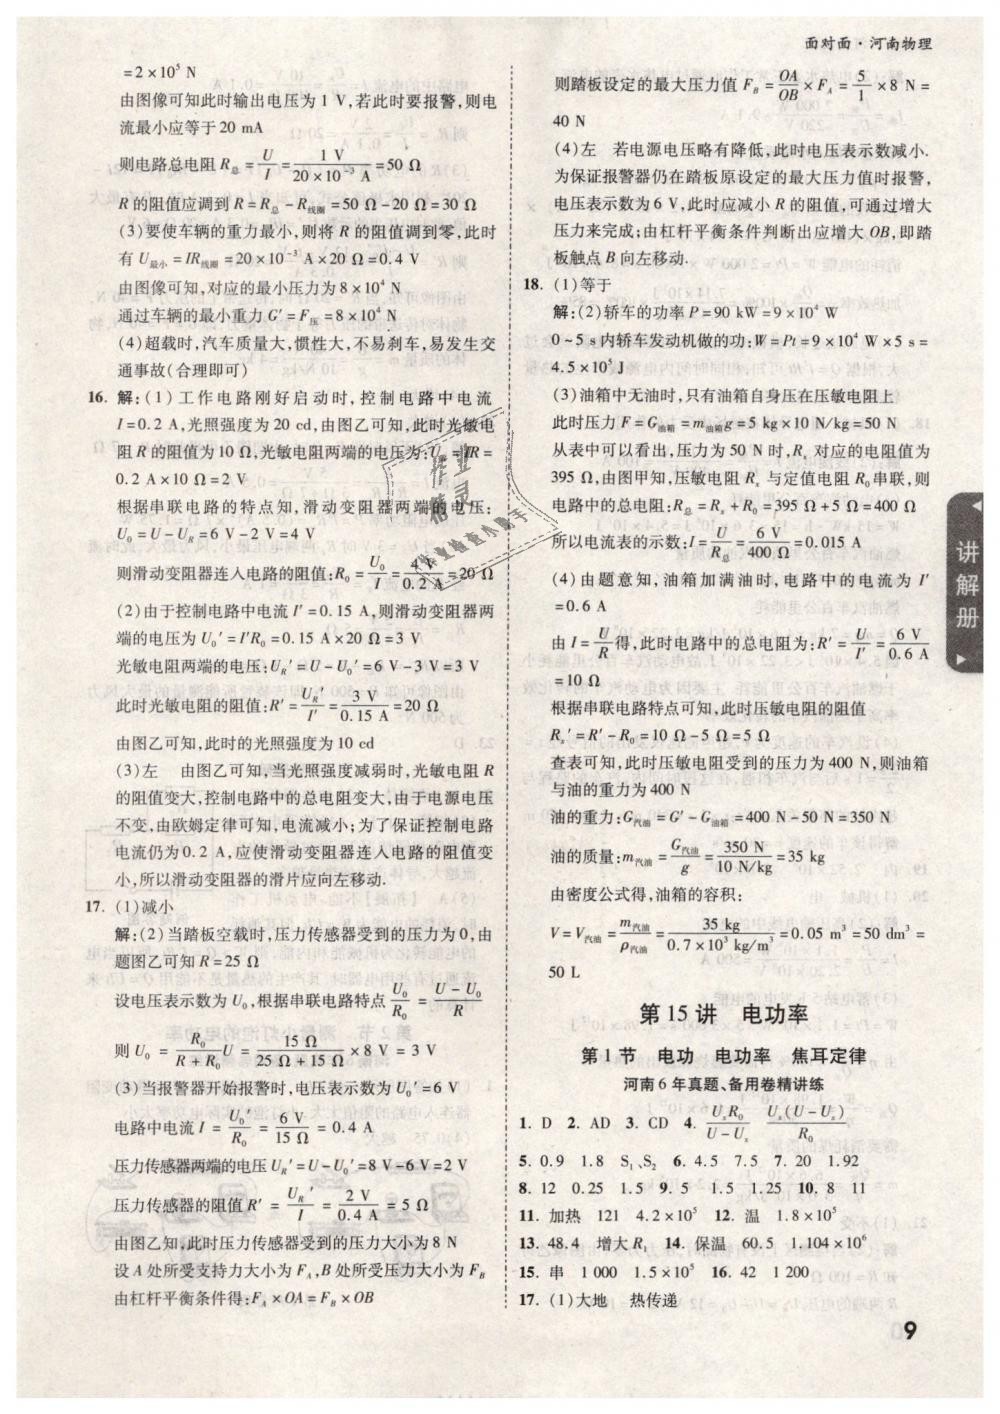 面对面·河南物理
=2×10⁵ N
由图像可知此时输出电压为 1 V,若此时要报警,则电
流最小应等于 20 mA
则电路总电阻 R总 = U/I = 1 V/(20×10⁻³ A) = 50 Ω
R 的阻值应调到 R=R总-R线圈=50 Ω-20 Ω=30 Ω
(3)要使车辆的重力最小,则将 R 的阻值调到零,此时
有 U最小=IR线圈=20×10⁻³ A×20 Ω=0.4 V
由图像可知,对应的最小压力为 8×10⁴ N
通过车辆的最小重力 G′=F压=8×10⁴ N
(4)超载时,汽车质量大,惯性大,不易刹车,易发生交
通事故(合理即可)
16. 解:(1)工作电路刚好启动时,控制电路中电流
I=0.2 A,光照强度为 20 cd,由图乙可知,此时光敏电
阻 R 的阻值为 10 Ω,光敏电阻两端的电压为:U_R=IR=
0.2 A×10 Ω=2 V
根据串联电路的特点知,滑动变阻器两端的电压:
U₀=U-U_R=6 V-2 V=4 V
则滑动变阻器连入电路的阻值:R₀=U₀/I=4 V/0.2 A=20 Ω
(2)由于控制电路中电流 I′=0.15 A,则滑动变阻器两
端的电压为 U₀′=I′R₀=0.15 A×20 Ω=3 V
光敏电阻两端的电压:U_R′=U-U₀′=6 V-3 V=3 V
此时光敏电阻的阻值:R′=U_R′/I′=3 V/0.15 A=20 Ω
由图乙可知,此时的光照强度为 10 cd
(3)左 由图乙可知,当光照强度减弱时,光敏电阻 R
的阻值变大,控制电路中的总电阻变大,由于电源电压
不变,由欧姆定律可知,电流减小;为了保证控制电路
电流仍为 0.2 A,应使滑动变阻器连入电路的阻值变
小,所以滑动变阻器的滑片应向左移动.
17. (1)减小
解:(2)当踏板空载时,压力传感器受到的压力为 0,由
题图乙可知 R=25 Ω
设电压表示数为 U₀,根据串联电路特点 U₀/R₀=(U-U₀)/R
则 U₀=R₀/(R+R₀)U=15 Ω/(25 Ω+15 Ω)×8 V=3 V
(3)当报警器开始报警时,电压表示数为 U₀′=6 V
电路中电流 I=U₀′/R₀=6 V/15 Ω=0.4 A
压力传感器两端的电压 U_R′=U-U₀′=8 V-6 V=2 V
压力传感器的阻值 R′=U_R′/I=2 V/0.4 A=5 Ω
由图乙知,此时压力传感器受到的压力大小为 8 N
设 A 处所受支持力大小为 F_A,B 处所受压力大小为 F_B
由杠杆平衡条件得:F_A×OA=F_B×OB
则踏板设定的最大压力值 F_B=OA/OB×F_A=5/1×8 N=
40 N
(4)左 若电源电压略有降低,此时电压表示数减小.
为保证报警器仍在踏板原设定的最大压力值时报警,
电压表示数为 6 V,此时应减小 R 的阻值,可通过增大
压力来完成;由杠杆平衡条件判断出应增大 OB,即踏
板触点 B 向左移动.
18. (1)等于
解:(2)轿车的功率 P=90 kW=9×10⁴ W
0~5 s 内轿车发动机做的功:W=Pt=9×10⁴ W×5 s=
4.5×10⁵ J
(3)油箱中无油时,只有油箱自身压在压敏电阻上
此时压力 F=G油箱=m油箱g=5 kg×10 N/kg=50 N
从表中可以看出,压力为 50 N 时,Rₓ 对应的电阻值为
395 Ω,由图甲知,压敏电阻 Rₓ 与定值电阻 R₀串联,则
电路中的总电阻:R总=Rₓ+R₀=395 Ω+5 Ω=400 Ω
所以电流表的示数:I=U/R总=6 V/400 Ω=0.015 A
(4)由题意知,油箱加满油时,电路中的电流为 I′
=0.6 A
由 I=U/R得,此时电路中的总电阻为:R′=U/I′=6 V/0.6 A
=10 Ω
根据串联电路特点可知,此时压敏电阻的阻值
Rₓ′=R′-R₀=10 Ω-5 Ω=5 Ω
查表可知,此时压敏电阻受到的压力为 400 N,则油箱
与油的重力为 400 N
油的重力:G汽油=G′-G油箱=400 N-50 N=350 N
油的质量:m汽油=G汽油/g=350 N/(10 N/kg)=35 kg
由密度公式得,油箱的容积:
V=V汽油=m汽油/ρ汽油=35 kg/(0.7×10³ kg/m³)=0.05 m³=50 dm³=
50 L
第 15 讲 电功率
第 1 节 电功 电功率 焦耳定律
河南 6 年真题、备用卷精讲练
1. D 2. AD 3. CD 4. UₓR₀/(U-Uₓ) Uₓ(U-Uₓ)/R₀
5. 0.9 1.8 S₁、S₂ 6. 4.5 7.5 7. 20 1.92
8. 12 0.25 1.5 9. 5 1.5 1.25 10. 8 11
11. 加热 121 4.2×10⁵ 12. 温 1.8×10⁵
13. 48.4 增大R₁ 14. 保温 60.5 1.104×10⁶
15. 串 1 000 1.5×10⁵ 16. 42 1 200
17. (1)大地 热传递
讲解册
作业
精灵
作业检查小助手
9